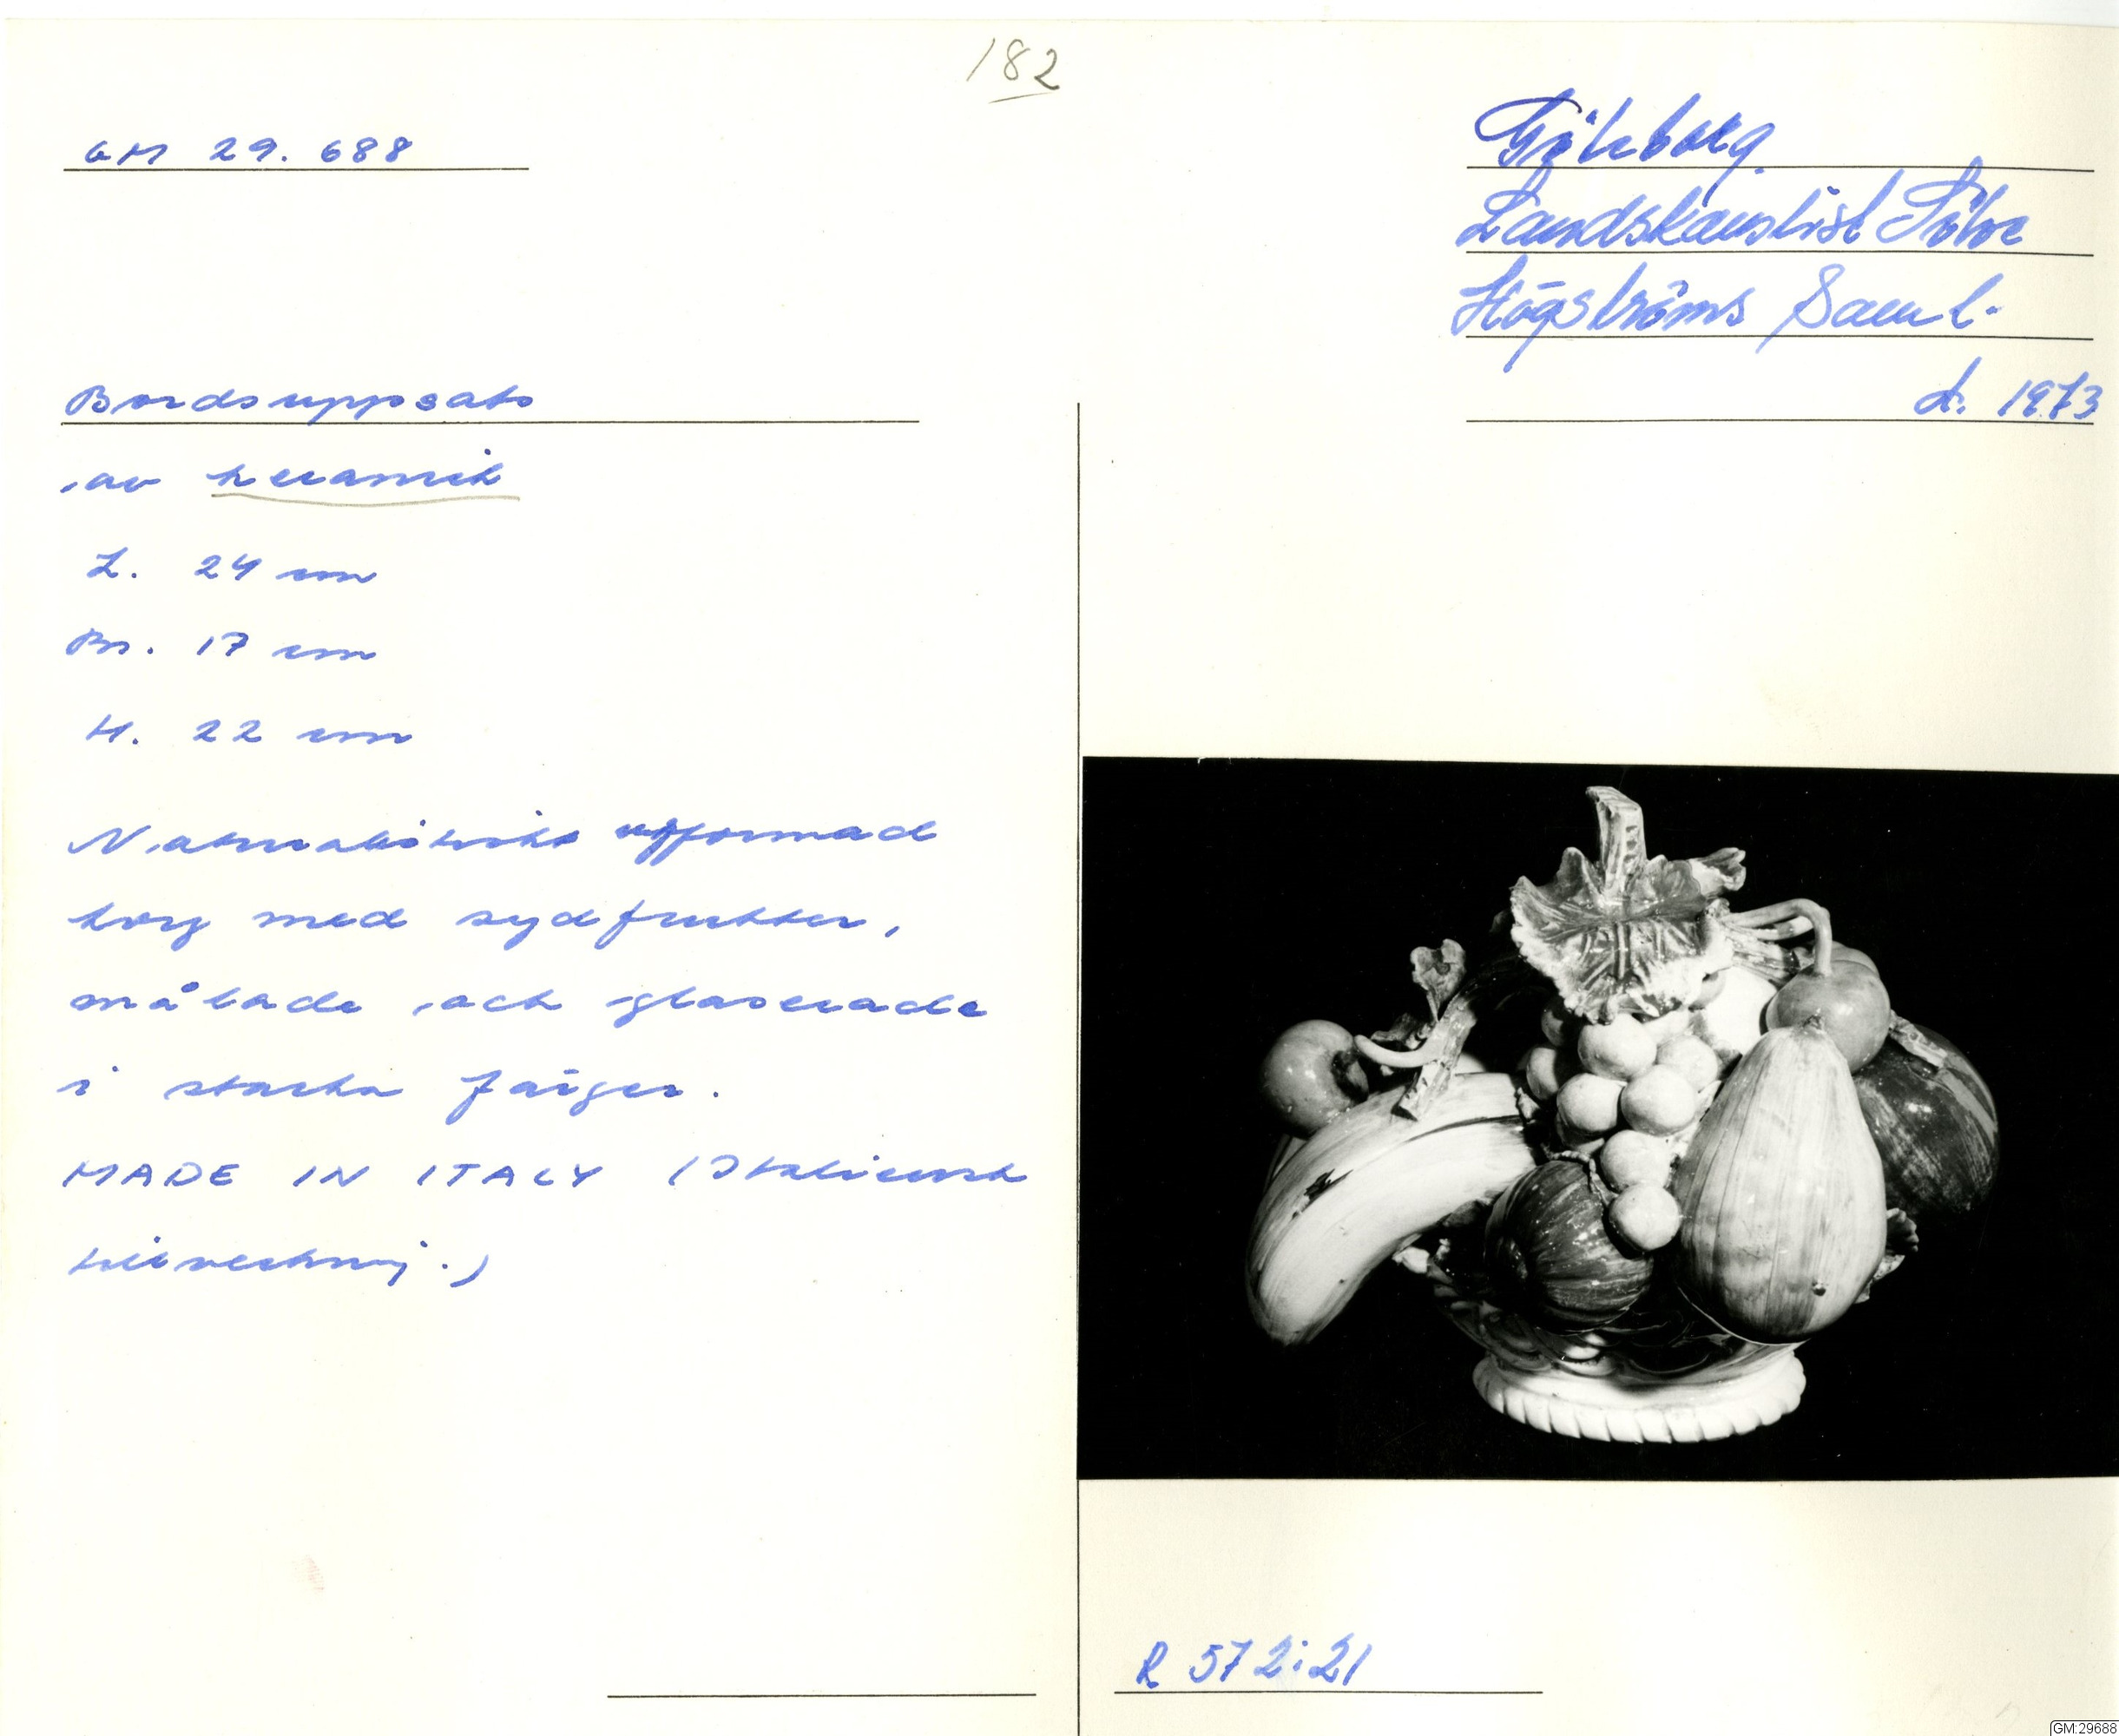 182
GM 29.688
Göteborg
Landskanslist Sölve
Högströms Saml.
d. 1973
Bordsuppsats
av keramik
L. 24 cm
Br. 17 cm
H. 22 cm
Naturalistiskt utformad
korg med sydfrukter,
målade och glaserade
i starka färger.
MADE IN ITALY (Italiensk
tillverkning.)
R 572:21
GM:29688